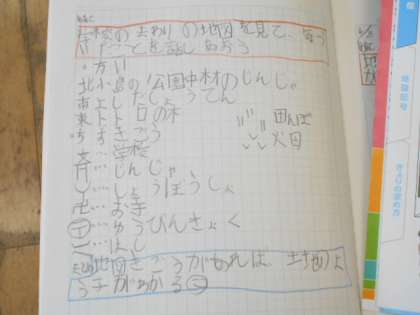 学校のまわりの地図を見て、気づ
いたことを話しあおう
・方い
北小島の公園中村のじんじゃ
南よしだしょうてん
東トトロの木
ちずきごう
文…学校
…じんじゃ
Y…しょうぼうしょ
卍…お寺
〒…ゆうびんきょく
…はし
田んぼ
畑
地図きごうがあれば、土地のよ
う子がわかる
地図記号
きょりの求め方